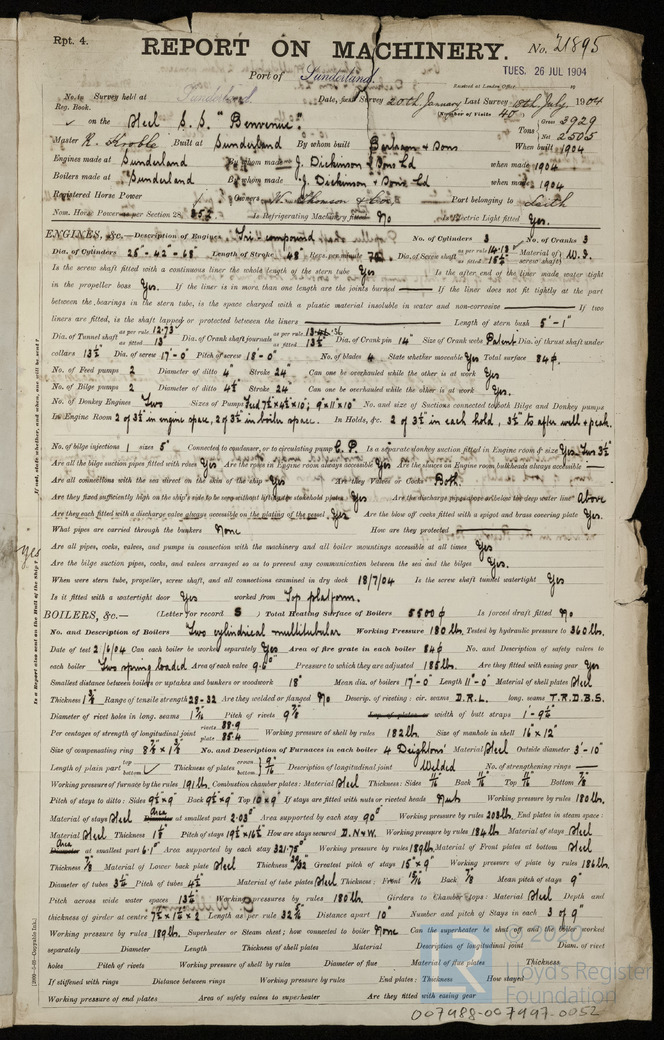 Rpt. 4.
REPORT ON MACHINERY.
No. 21895
Port of Sunderland
TUES. 26 JUL 1904
Received at London Office
No. in Survey held at Sunderland Date, first Survey 20th January Last Survey July 1904
Reg. Book. (Number of Visits 40
on the Steel S.S. "Benvenue" Tons Gross 3929 Net 2505
Master R. Kroble Built at Sunderland By whom built Bartram & Sons When built 1904
Engines made at Sunderland By whom made J. Dickinson & Sons Ld when made 1904
Boilers made at Sunderland By whom made J. Dickinson & Sons Ld when made 1904
Registered Horse Power Owners W. Thomson & Co Port belonging to Leith
Nom. Horse Power as per Section 28 Is Refrigerating Machinery fitted No Is Electric Light fitted Yes.
ENGINES, &c.—Description of Engines Tri-compound No. of Cylinders 3 No. of Cranks 3
Dia. of Cylinders 25" - 42" - 68" Length of Stroke 48" Revs. per minute Dia. of Screw shaft as per rule 14.13 as fitted 15¼" Material of screw shaft W.I.
Is the screw shaft fitted with a continuous liner the whole length of the stern tube Yes Is the after end of the liner made water tight
in the propeller boss Yes. If the liner is in more than one length are the joints burned — If the liner does not fit tightly at the part
between the bearings in the stern tube, is the space charged with a plastic material insoluble in water and non-corrosive — If two
liners are fitted, is the shaft lapped or protected between the liners — Length of stern bush 5'-1"
Dia. of Tunnel shaft as per rule 12.73 as fitted 13" Dia. of Crank shaft journals as per rule 13.36 as fitted 13½" Dia. of Crank pin 14" Size of Crank webs Patent Dia. of thrust shaft under
collars 13½" Dia. of screw 17'-0" Pitch of screw 18'-0" No. of blades 4 State whether moveable Yes Total surface 84 ф.
No. of Feed pumps 2 Diameter of ditto 4" Stroke 24" Can one be overhauled while the other is at work Yes
No. of Bilge pumps 2 Diameter of ditto 4½" Stroke 24" Can one be overhauled while the other is at work Yes.
No. of Donkey Engines Two Sizes of Pumps Feed 7½" x 4½" x 10"; 9" x 11" x 10" No. and size of Suctions connected to both Bilge and Donkey pumps
In Engine Room 2 of 3½" in engine space, 2 of 3½" in boiler space. In Holds, &c. 2 of 3½" in each hold, 3½" to after well & peak.
No. of bilge injections 1 sizes 5" Connected to condenser, or to circulating pump C.P. Is a separate donkey suction fitted in Engine room & size Yes Two 3½"
Are all the bilge suction pipes fitted with roses Yes Are the roses in Engine room always accessible Yes Are the sluices on Engine room bulkheads always accessible —
Are all connections with the sea direct on the skin of the ship Yes Are they Valves or Cocks Both
Are they fixed sufficiently high on the ship's side to be seen without lifting the stokehold plates Yes Are the discharge pipes above or below the deep water line Above
Are they each fitted with a discharge valve always accessible on the plating of the vessel Yes Are the blow off cocks fitted with a spigot and brass covering plate Yes.
What pipes are carried through the bunkers None How are they protected —
Are all pipes, cocks, valves, and pumps in connection with the machinery and all boiler mountings accessible at all times Yes
Are the bilge suction pipes, cocks, and valves arranged so as to prevent any communication between the sea and the bilges Yes.
When were stern tube, propeller, screw shaft, and all connections examined in dry dock 18/7/04 Is the screw shaft tunnel watertight Yes
Is it fitted with a watertight door Yes worked from Top platform.
BOILERS, &c.— (Letter for record S) Total Heating Surface of Boilers 5500 ф Is forced draft fitted No
No. and Description of Boilers Two cylindrical multitubular Working Pressure 180 lbs. Tested by hydraulic pressure to 360 lbs.
Date of test 21/6/04 Can each boiler be worked separately Yes Area of fire grate in each boiler 84 ф No. and Description of safety valves to
each boiler Two spring loaded Area of each valve Pressure to which they are adjusted 185 lbs. Are they fitted with easing gear Yes
Smallest distance between boilers or uptakes and bunkers or woodwork 18" Mean dia. of boilers 17'-0" Length 11'-0" Material of shell plates Steel
Thickness Range of tensile strength 28-32 Are they welded or flanged No Descrip. of riveting: cir. seams D.R.L. long. seams T.R.D.B.S.
Diameter of rivet holes in long. seams Pitch of rivets 9⅞" Lap of plates or width of butt straps 1'-9½"
Per centages of strength of longitudinal joint rivets 88.9 plate 85.4 Working pressure of shell by rules 182 lbs. Size of manhole in shell 16" x 12"
Size of compensating ring 8¾" x 1⅜" No. and Description of Furnaces in each boiler 4 Deightons' Material Steel Outside diameter 3'-10"
Length of plain part top bottom Thickness of plates crown bottom 9/16" Description of longitudinal joint Welded No. of strengthening rings —
Working pressure of furnace by the rules 191 lbs. Combustion chamber plates: Material Steel Thickness: Sides 11/16" Back 11/16" Top 11/16" Bottom ⅞"
Pitch of stays to ditto: Sides 9½" x 9" Back 9½" x 9" Top 10" x 9" If stays are fitted with nuts or riveted heads Nuts Working pressure by rules 180 lbs.
Material of stays Steel Area at smallest part 2.03" Area supported by each stay 90" Working pressure by rules 203 lbs. End plates in steam space:
Material Steel Thickness 1⅛" Pitch of stays 19½" x 16½" How are stays secured D.N&W. Working pressure by rules 184 lbs. Material of stays Steel
Area at smallest part 6.1" Area supported by each stay 321.75" Working pressure by rules 189 lbs. Material of Front plates at bottom Steel
Thickness ⅞" Material of Lower back plate Steel Thickness 29/32" Greatest pitch of stays 15" x 9" Working pressure of plate by rules 186 lbs.
Diameter of tubes 3¼" Pitch of tubes 4½" Material of tube plates Steel Thickness: Front 15/16" Back ⅞" Mean pitch of stays 9"
Pitch across wide water spaces 13½" Working pressures by rules 180 lbs. Girders to Chamber tops: Material Steel Depth and
thickness of girder at centre Length as per rule Distance apart 10" Number and pitch of Stays in each 3 of 9"
Working pressure by rules 189 lbs. Superheater or Steam chest; how connected to boiler None Can the superheater be shut off and the boiler worked
separately Diameter Length Thickness of shell plates Material Description of longitudinal joint Diam. of rivet
holes Pitch of rivets Working pressure of shell by rules Diameter of flue Material of flue plates Thickness
If stiffened with rings Distance between rings Working pressure by rules End plates: Thickness How stayed
Working pressure of end plates Area of safety valves to superheater Are they fitted with easing gear
If not, state whether, and when, one will be sent?
Is a Report also sent on the Hull of the Ship?
yes
© 2020
Lloyd's Register
Foundation
007988-007997-0052